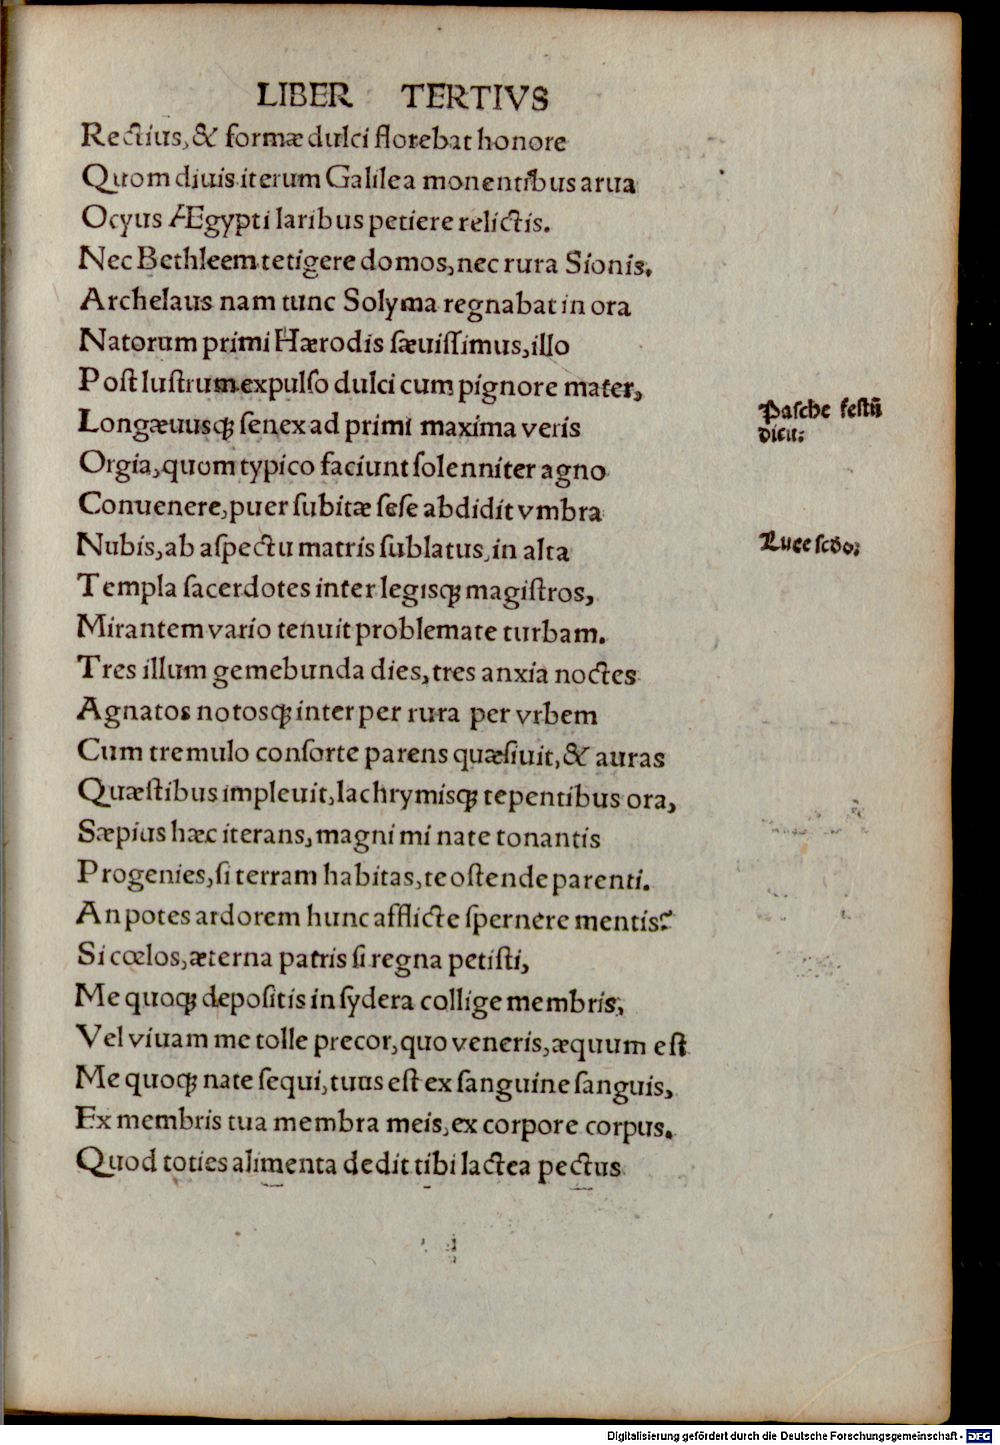 LIBER TERTIVS
Rectius, & formæ dulci florebat honore
Quom diuis iterum Galilea monentibus arua
Ocyus Ægypti laribus petiere relictis.
Nec Bethleem tetigere domos, nec rura Sionis.
Archelaus nam tunc Solyma regnabat in ora
Natorum primi Hærodis sæuiſſimus, illo
Poſt luſtrum expulſo dulci cum pignore mater,
Longæuusqꝫ ſenex ad primi maxima veris
Paſche feſtū
dicit:
Orgia, quom typico faciunt ſolenniter agno
Conuenere, puer ſubitæ ſeſe abdidit vmbra
Nubis, ab aſpectu matris ſublatus, in alta
Luce ſcďo:
Templa ſacerdotes inter legisqꝫ magiſtros,
Mirantem vario tenuit problemate turbam.
Tres illum gemebunda dies, tres anxia noctes
Agnatos notosqꝫ inter per rura per vrbem
Cum tremulo conſorte parens quæſiuit, & auras
Quæſtibus impleuit, lachrymisqꝫ tepentibus ora,
Sæpius hæc iterans, magni mi nate tonantis
Progenies, ſi terram habitas, te oſtende parenti.
An potes ardorem hunc afflicte ſpernere mentis?
Si cœlos, æterna patris ſi regna petiſti,
Me quoqꝫ depoſitis in ſydera collige membris,
Vel viuam me tolle precor, quo veneris, æquum eſt
Me quoqꝫ nate ſequi, tuus eſt ex ſanguine ſanguis,
Ex membris tua membra meis, ex corpore corpus.
Quod toties alimenta dedit tibi lactea pectus
Digitalisierung gefördert durch die Deutsche Forschungsgemeinschaft - DFG